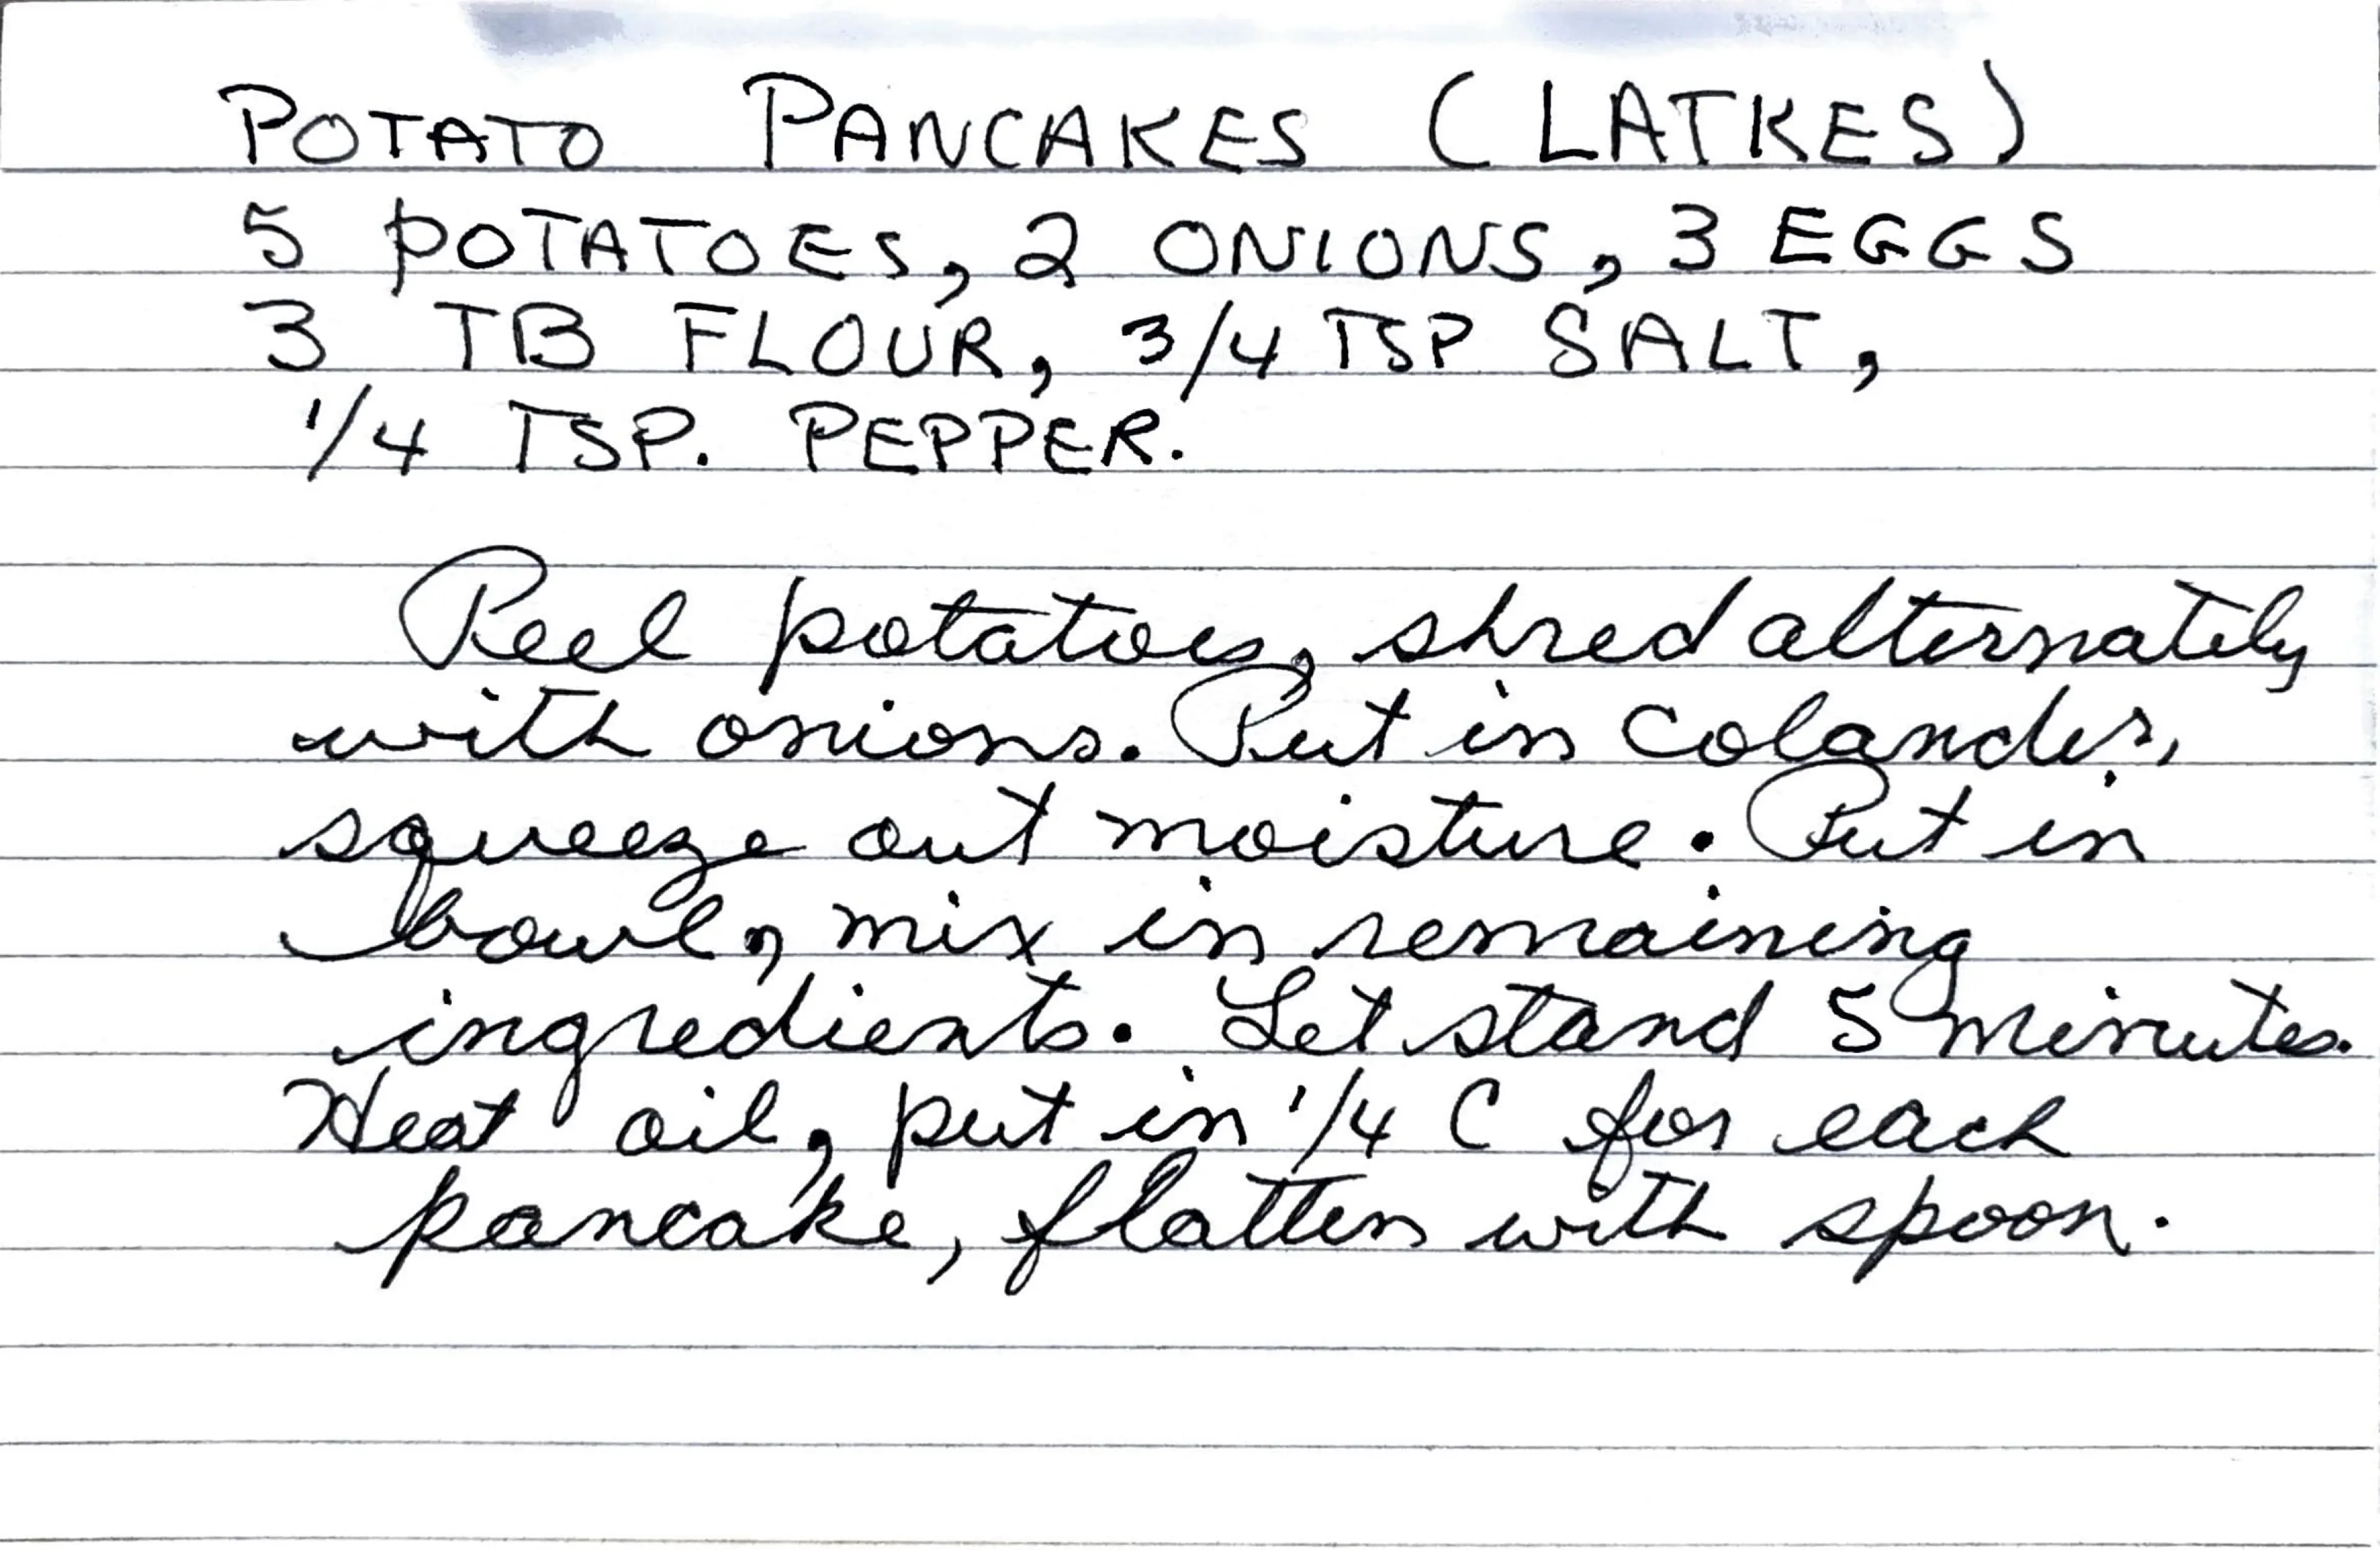 POTATO PANCAKES (LATKES)
5 POTATOES, 2 ONIONS, 3 EGGS
3 TB FLOUR, 3/4 TSP SALT,
1/4 TSP. PEPPER.
Peel potatoes, shred alternately
with onions. Put in colander,
squeeze out moisture. Put in
bowl, mix in remaining
ingredients. Let stand 5 minutes.
Heat oil, put in 1/4 C for each
pancake, flatten with spoon.